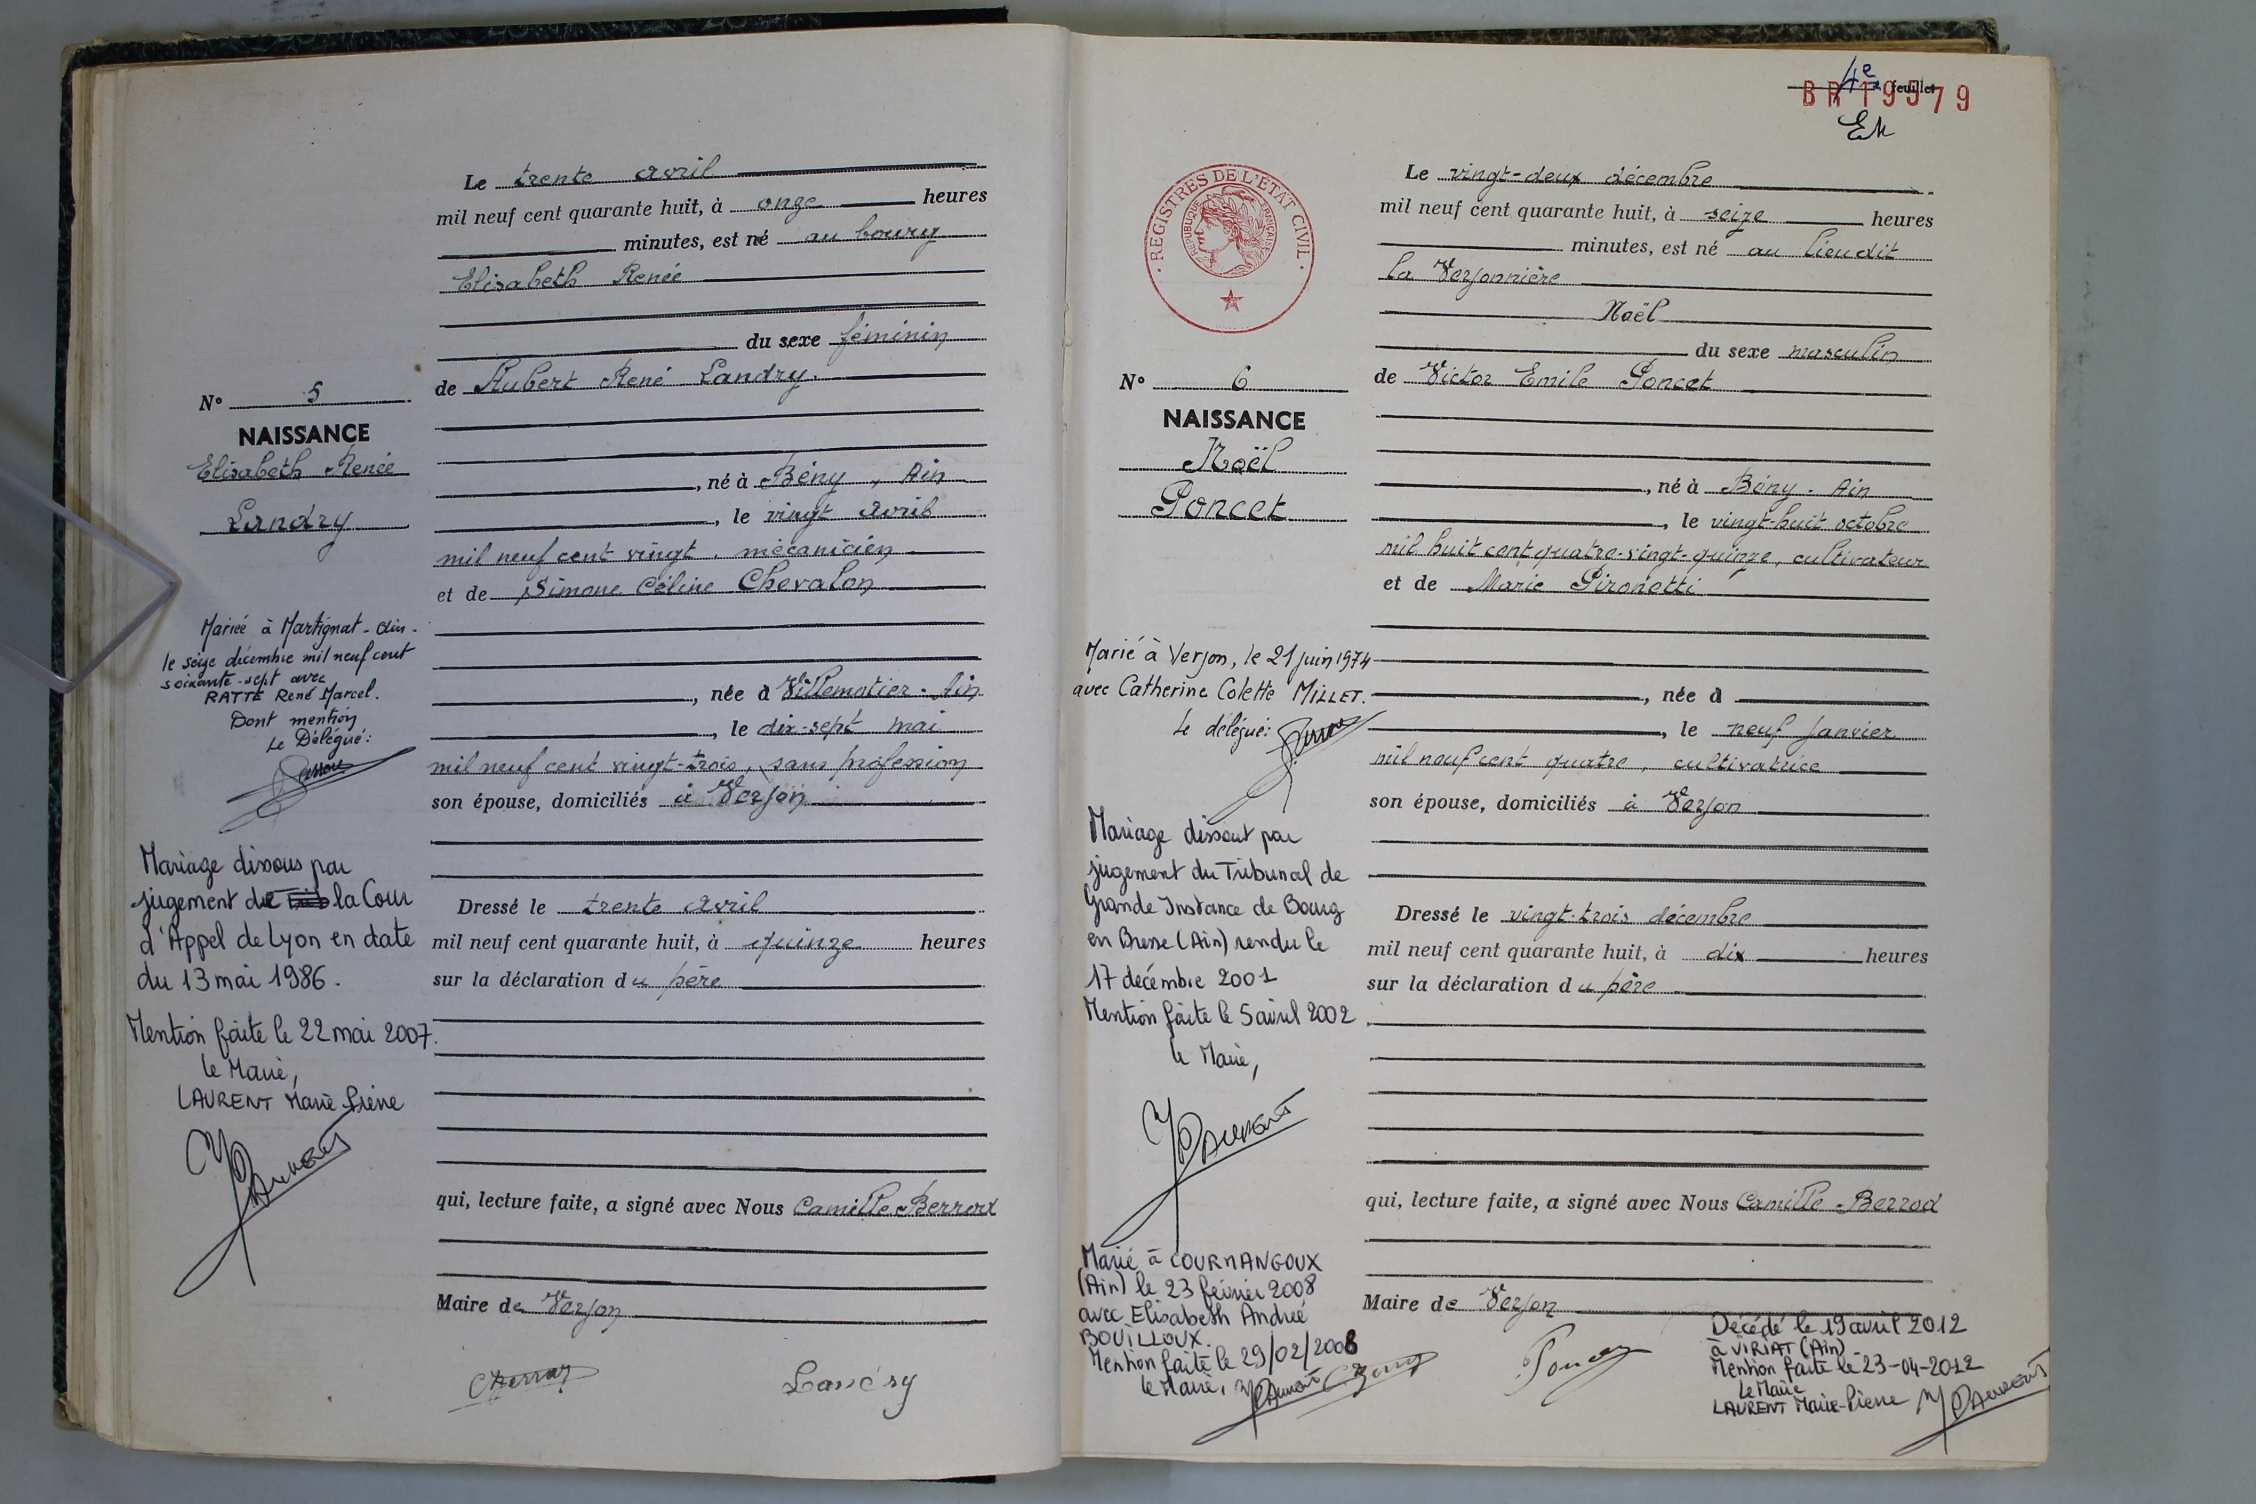 Le trente avril
mil neuf cent quarante huit, à onze heures
minutes, est né au bourg
Elisabeth Renée
du sexe féminin
N° 5
de Hubert René Landry.
NAISSANCE
Elisabeth Renée
Landry
, né à Bény, Ain
, le vingt avril
mil neuf cent vingt, mécanicien
et de Simone Céline Chevalon
, née à Villemotier. Ain
, le dix-sept mai
mil neuf cent vingt-trois, sans profession
son épouse, domiciliés à Verjon
Dressé le trente avril
mil neuf cent quarante huit, à quinze heures
sur la déclaration du père
qui, lecture faite, a signé avec Nous Camille Berrod
Maire de Verjon
Landry
Mariée à Martignat - Ain -
le seize décembre mil neuf cent
soixante-sept avec
RATTE René Marcel.
Dont mention
Le Délégué:
Mariage dissous par
jugement de la Cour
d'Appel de Lyon en date
du 13 mai 1986.
Mention faite le 22 mai 2007.
Le Maire,
LAURENT Marie Pierre
4e feuillet
BR 19579
REGISTRES DE L'ETAT CIVIL
REPUBLIQUE FRANÇAISE
Le vingt-deux décembre
mil neuf cent quarante huit, à seize heures
minutes, est né au lieu dit
la Verjonnière
Noël
du sexe masculin
N° 6
de Victor Emile Poncet
NAISSANCE
Noël
Poncet
, né à Bény. Ain
, le vingt-huit octobre
mil huit cent quatre-vingt-quinze, cultivateur
et de Marie Pironetti
, née à
, le neuf janvier
mil neuf cent quatre, cultivatrice
son épouse, domiciliés à Verjon
Dressé le vingt-trois décembre
mil neuf cent quarante huit, à dix heures
sur la déclaration du père
qui, lecture faite, a signé avec Nous Camille Berrod
Maire de Verjon
Poncet
Marié à Verjon, le 21 juin 1974
avec Catherine Colette MILLET.
Le délégué:
Mariage dissout par
jugement du Tribunal de
Grande Instance de Bourg
en Bresse (Ain) rendu le
17 décembre 2001
Mention faite le 5 avril 2002
le Maire,
Marié à COURMANGOUX
(Ain) le 23 février 2008
avec Elisabeth André
BOUILLOUX.
Mention faite le 29/02/2008
le Maire,
Décédé le 19 avril 2012
à VIRIAT (Ain)
Mention faite le 23-04-2012
Le Maire
LAURENT Marie-Pierre